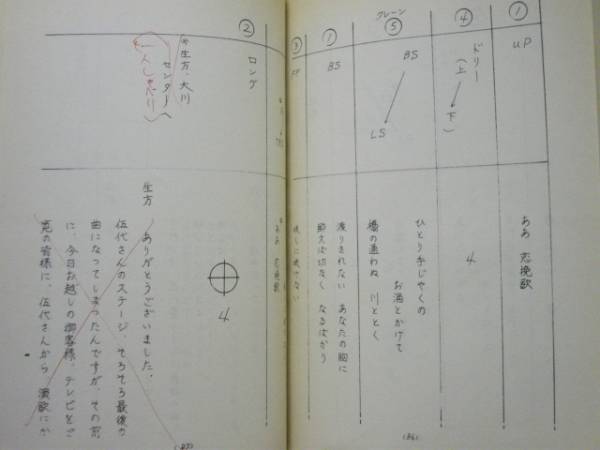 ①
UP
ああ 恋挽歌
④
ドリー
(上
下)
4
クレーン
⑤
BS
LS
ひとり手じゃくの
お酒とかけて
橋の通わぬ 川ととく
①
BS
渡りきれない あなたの胸に
節えば切なく なるばかり
③
(86)
②
ロング
生方、大川
センターへ
4
生方 ありがとうございました。
伍代さんのステージ、そろそろ最後の
曲になってしまったんですが、その前
に、今日お越しの御客様、テレビをご
覧の皆様に、伍代さんから 演歌にか